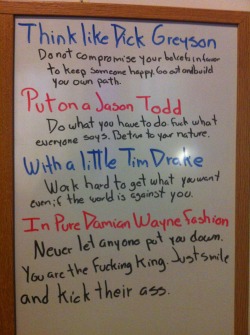 Think like Dick Greyson
Do not compromise your beliefs in favor
to keep someone happy. Go out and build
you own path.
Put on a Jason Todd
Do what you have to do fuck what
everyone says. Be true to your nature.
With a little Tim Drake
Work hard to get what you want
even if the world is against you.
In Pure Damian Wayne Fashion
Never let anyone put you down.
You are the fucking king. Just smile
and kick their ass.